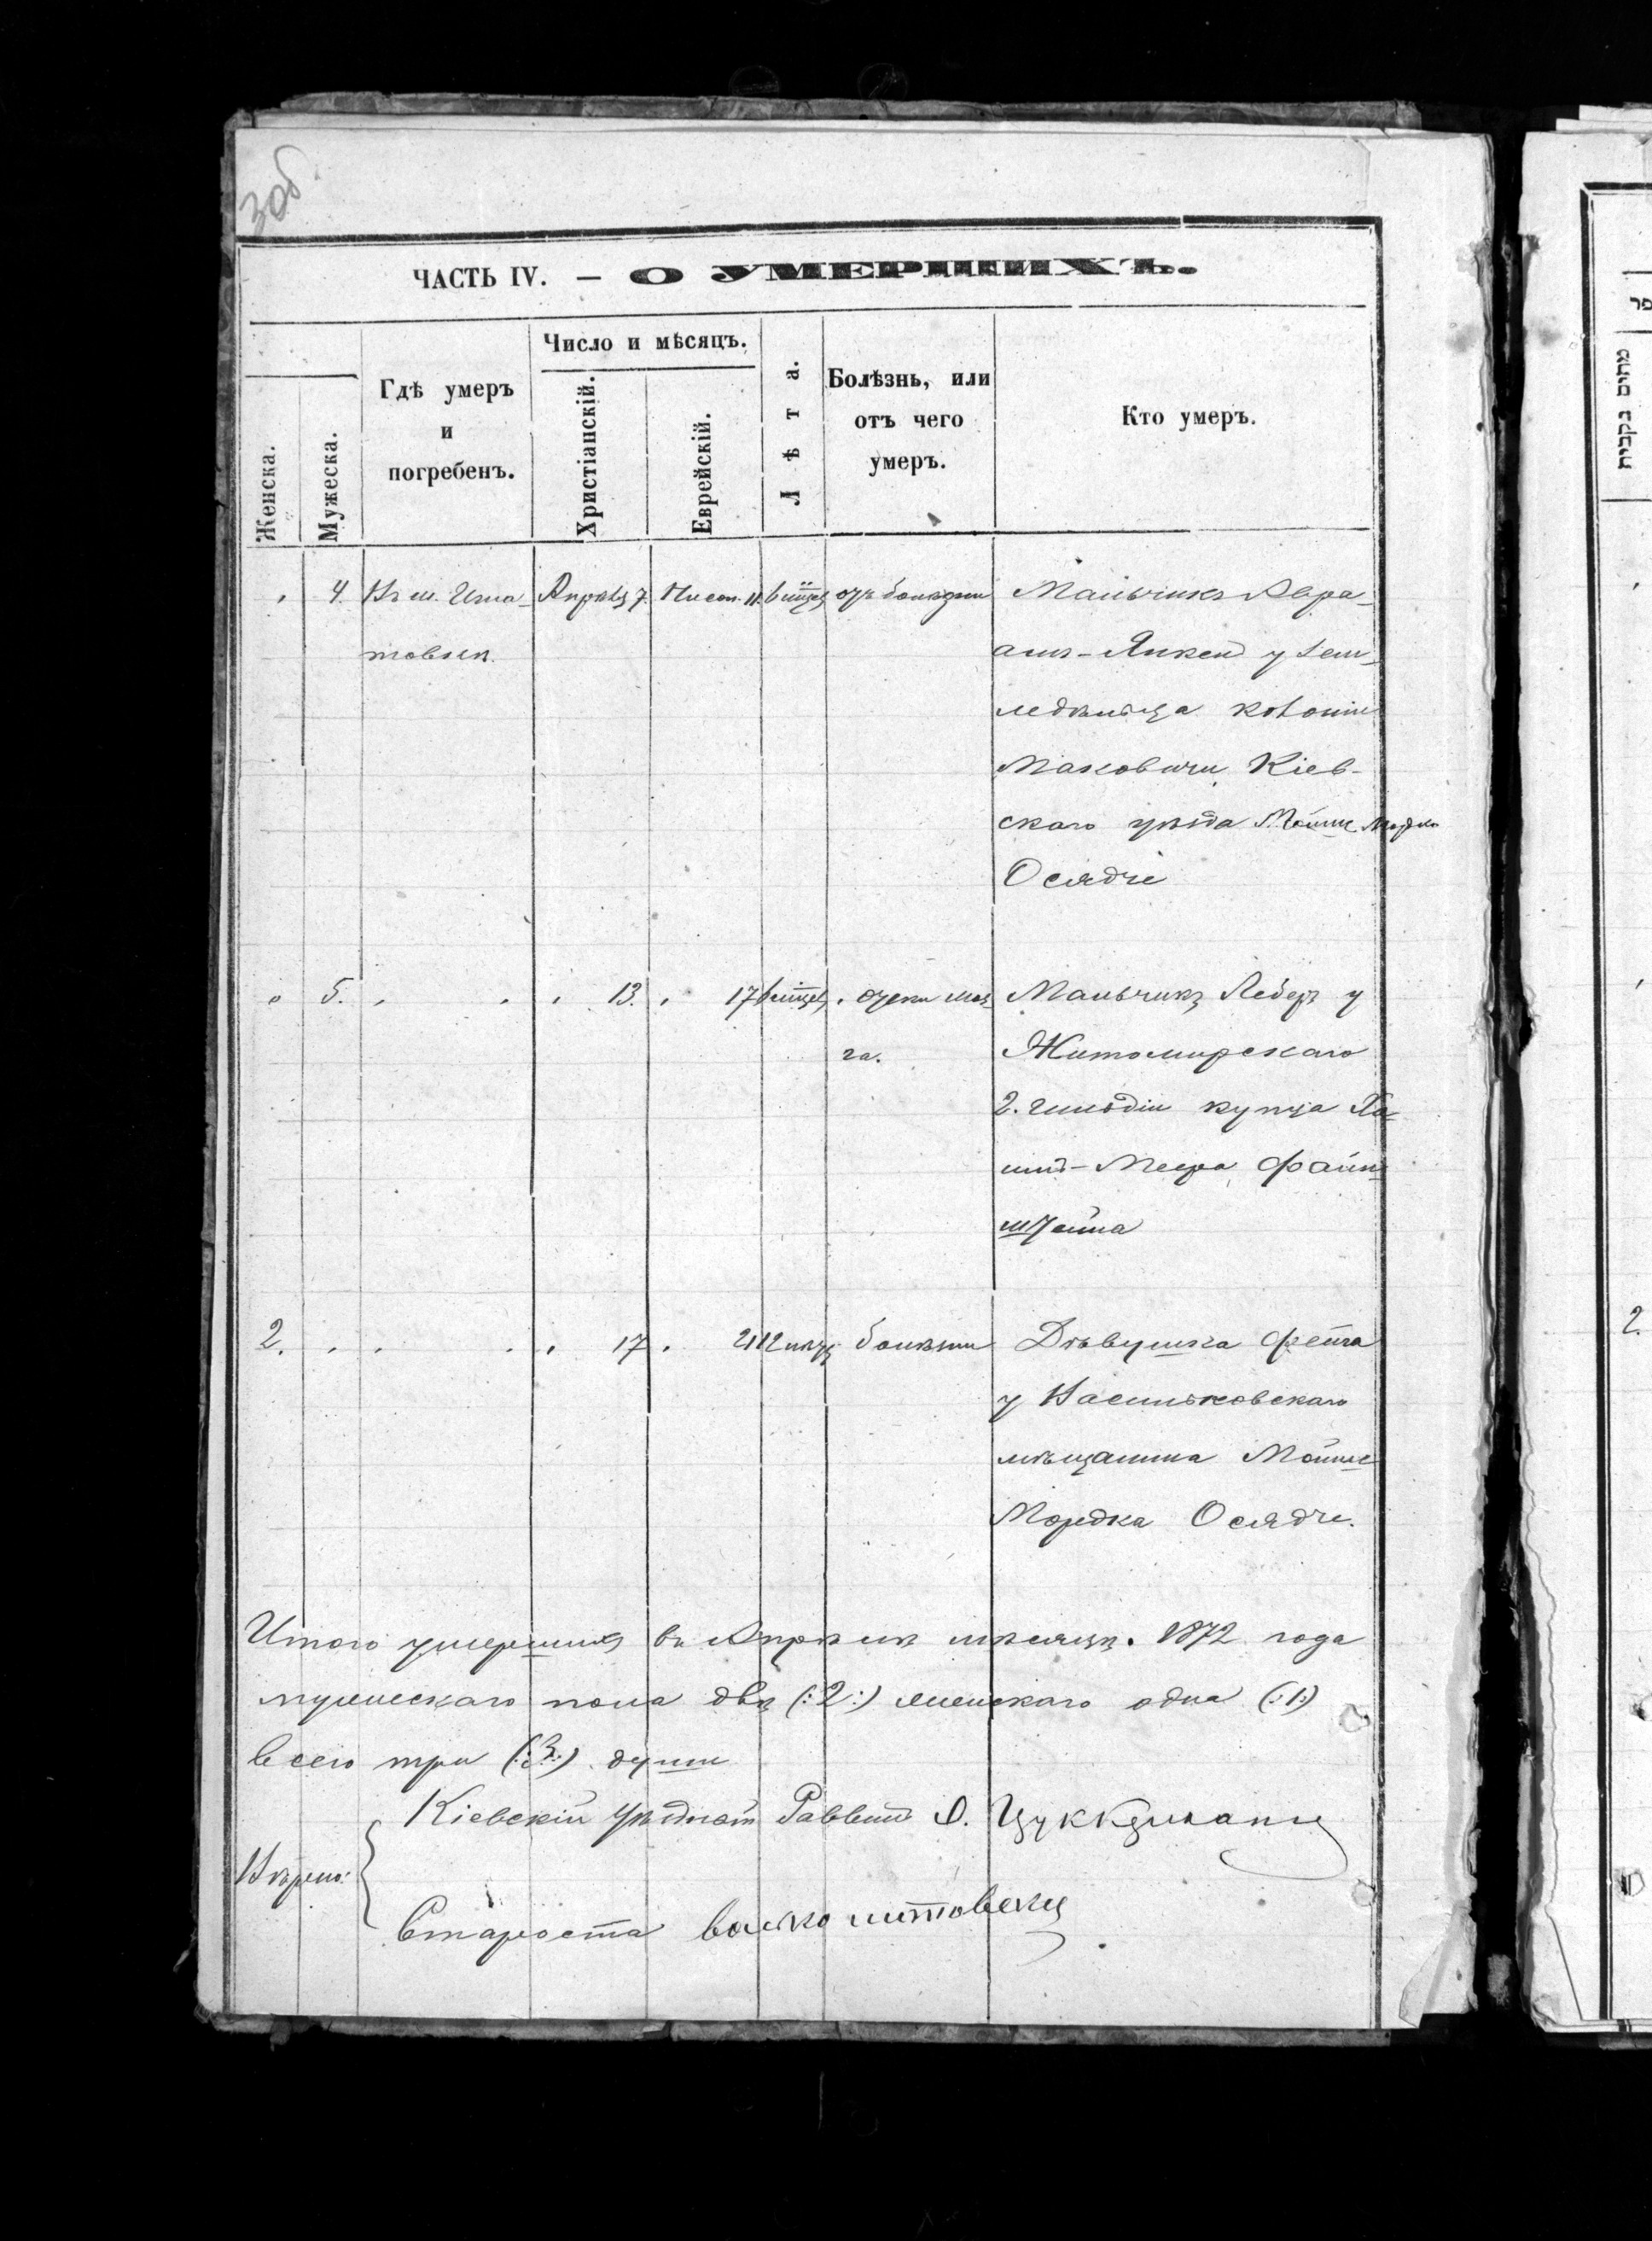 3об.
ЧАСТЬ IV. — О УМЕРШИХЪ.
Женска.
Мужеска.
Гдѣ умеръ
и
погребенъ.
Число и мѣсяцъ.
Христіанскій.
Еврейскій.
Лѣта.
Болѣзнь, или
отъ чего
умеръ.
Кто умеръ.
4. Въ м. Игна- Апрѣля 7. Нисон. 11. отъ болѣзни Мальчикъ Авра-
товки. амъ-Янкель у зем-
ледѣльца колоніи
Маковичи Кіев-
скаго уѣзда Мойше Мордко
Осядче
5. 13. 17 Мальчикъ Лейбъ у
га. Житомирскаго
2. гильдіи купца Ха-
имъ-Меера Файн-
штейна
2. 17. 21 12 болѣзни Дѣвушка Фейга
у Васильковскаго
мѣщанина Мойше
Мордка Осядче.
Итого умершихъ въ Апрѣлѣ мѣсяцѣ. 1872 года
мужескаго пола два (:2:) женскаго одна (:1:)
всего три (:3:) души
Кіевскій Уѣздный Раввинъ Цуккерманъ
Вѣрно:
Староста волко литовски
פר
מתים נקבות
2.